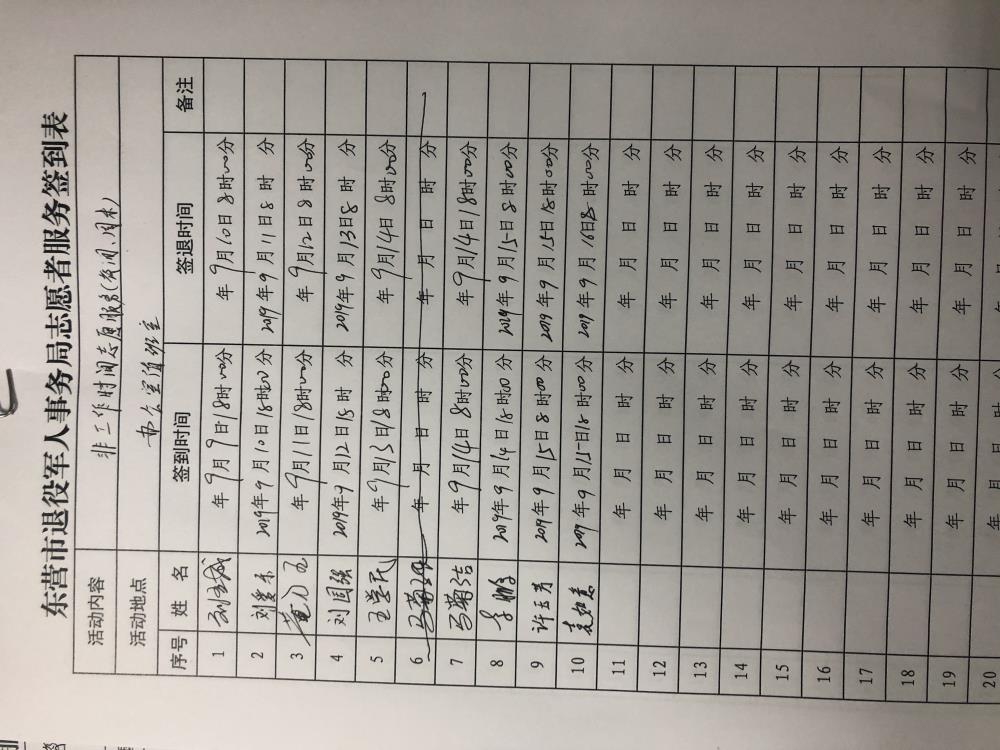 东营市退役军人事务局志愿者服务签到表
活动内容 非工作时间志愿服务(夜间、周末)
活动地点 办公室值班室
序号 姓 名 签到时间 签退时间 备注
1 年9月9日18时00分 年9月10日8时00分
2 刘爱东 2019年9月10日18时00分 2019年9月11日8时 分
3 年9月11日18时00分 年9月12日8时00分
4 刘国强 2019年9月12日18时 分 2019年9月13日8时 分
5 王学民 年9月13日18时00分 年9月14日8时00分
6 年 月 日 时 分 年 月 日 时 分
7 马菊洁 年9月14日8时00分 年9月14日18时00分
8 李鹏 2019年9月14日18时00分 2019年9月15日8时00分
9 许玉芳 2019年9月15日8时00分 2019年9月15日18时00分
10 袁如意 2019年9月15日18时00分 2019年9月16日8时00分
11 年 月 日 时 分 年 月 日 时 分
12 年 月 日 时 分 年 月 日 时 分
13 年 月 日 时 分 年 月 日 时 分
14 年 月 日 时 分 年 月 日 时 分
15 年 月 日 时 分 年 月 日 时 分
16 年 月 日 时 分 年 月 日 时 分
17 年 月 日 时 分 年 月 日 时 分
18 年 月 日 时 分 年 月 日 时 分
19 年 月 日 时 分 年 月 日 时 分
20 年 月 日 时 分 年 月 日 时 分